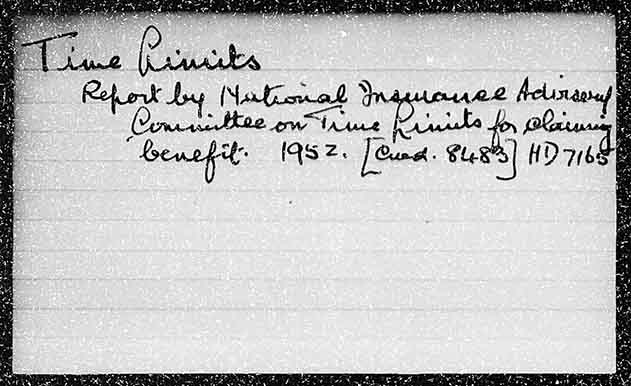 Time Limits
Report by National Insurance Advisory
Committee on Time Limits for claiming
benefit. 1952. [Cmd. 8483] HD7165